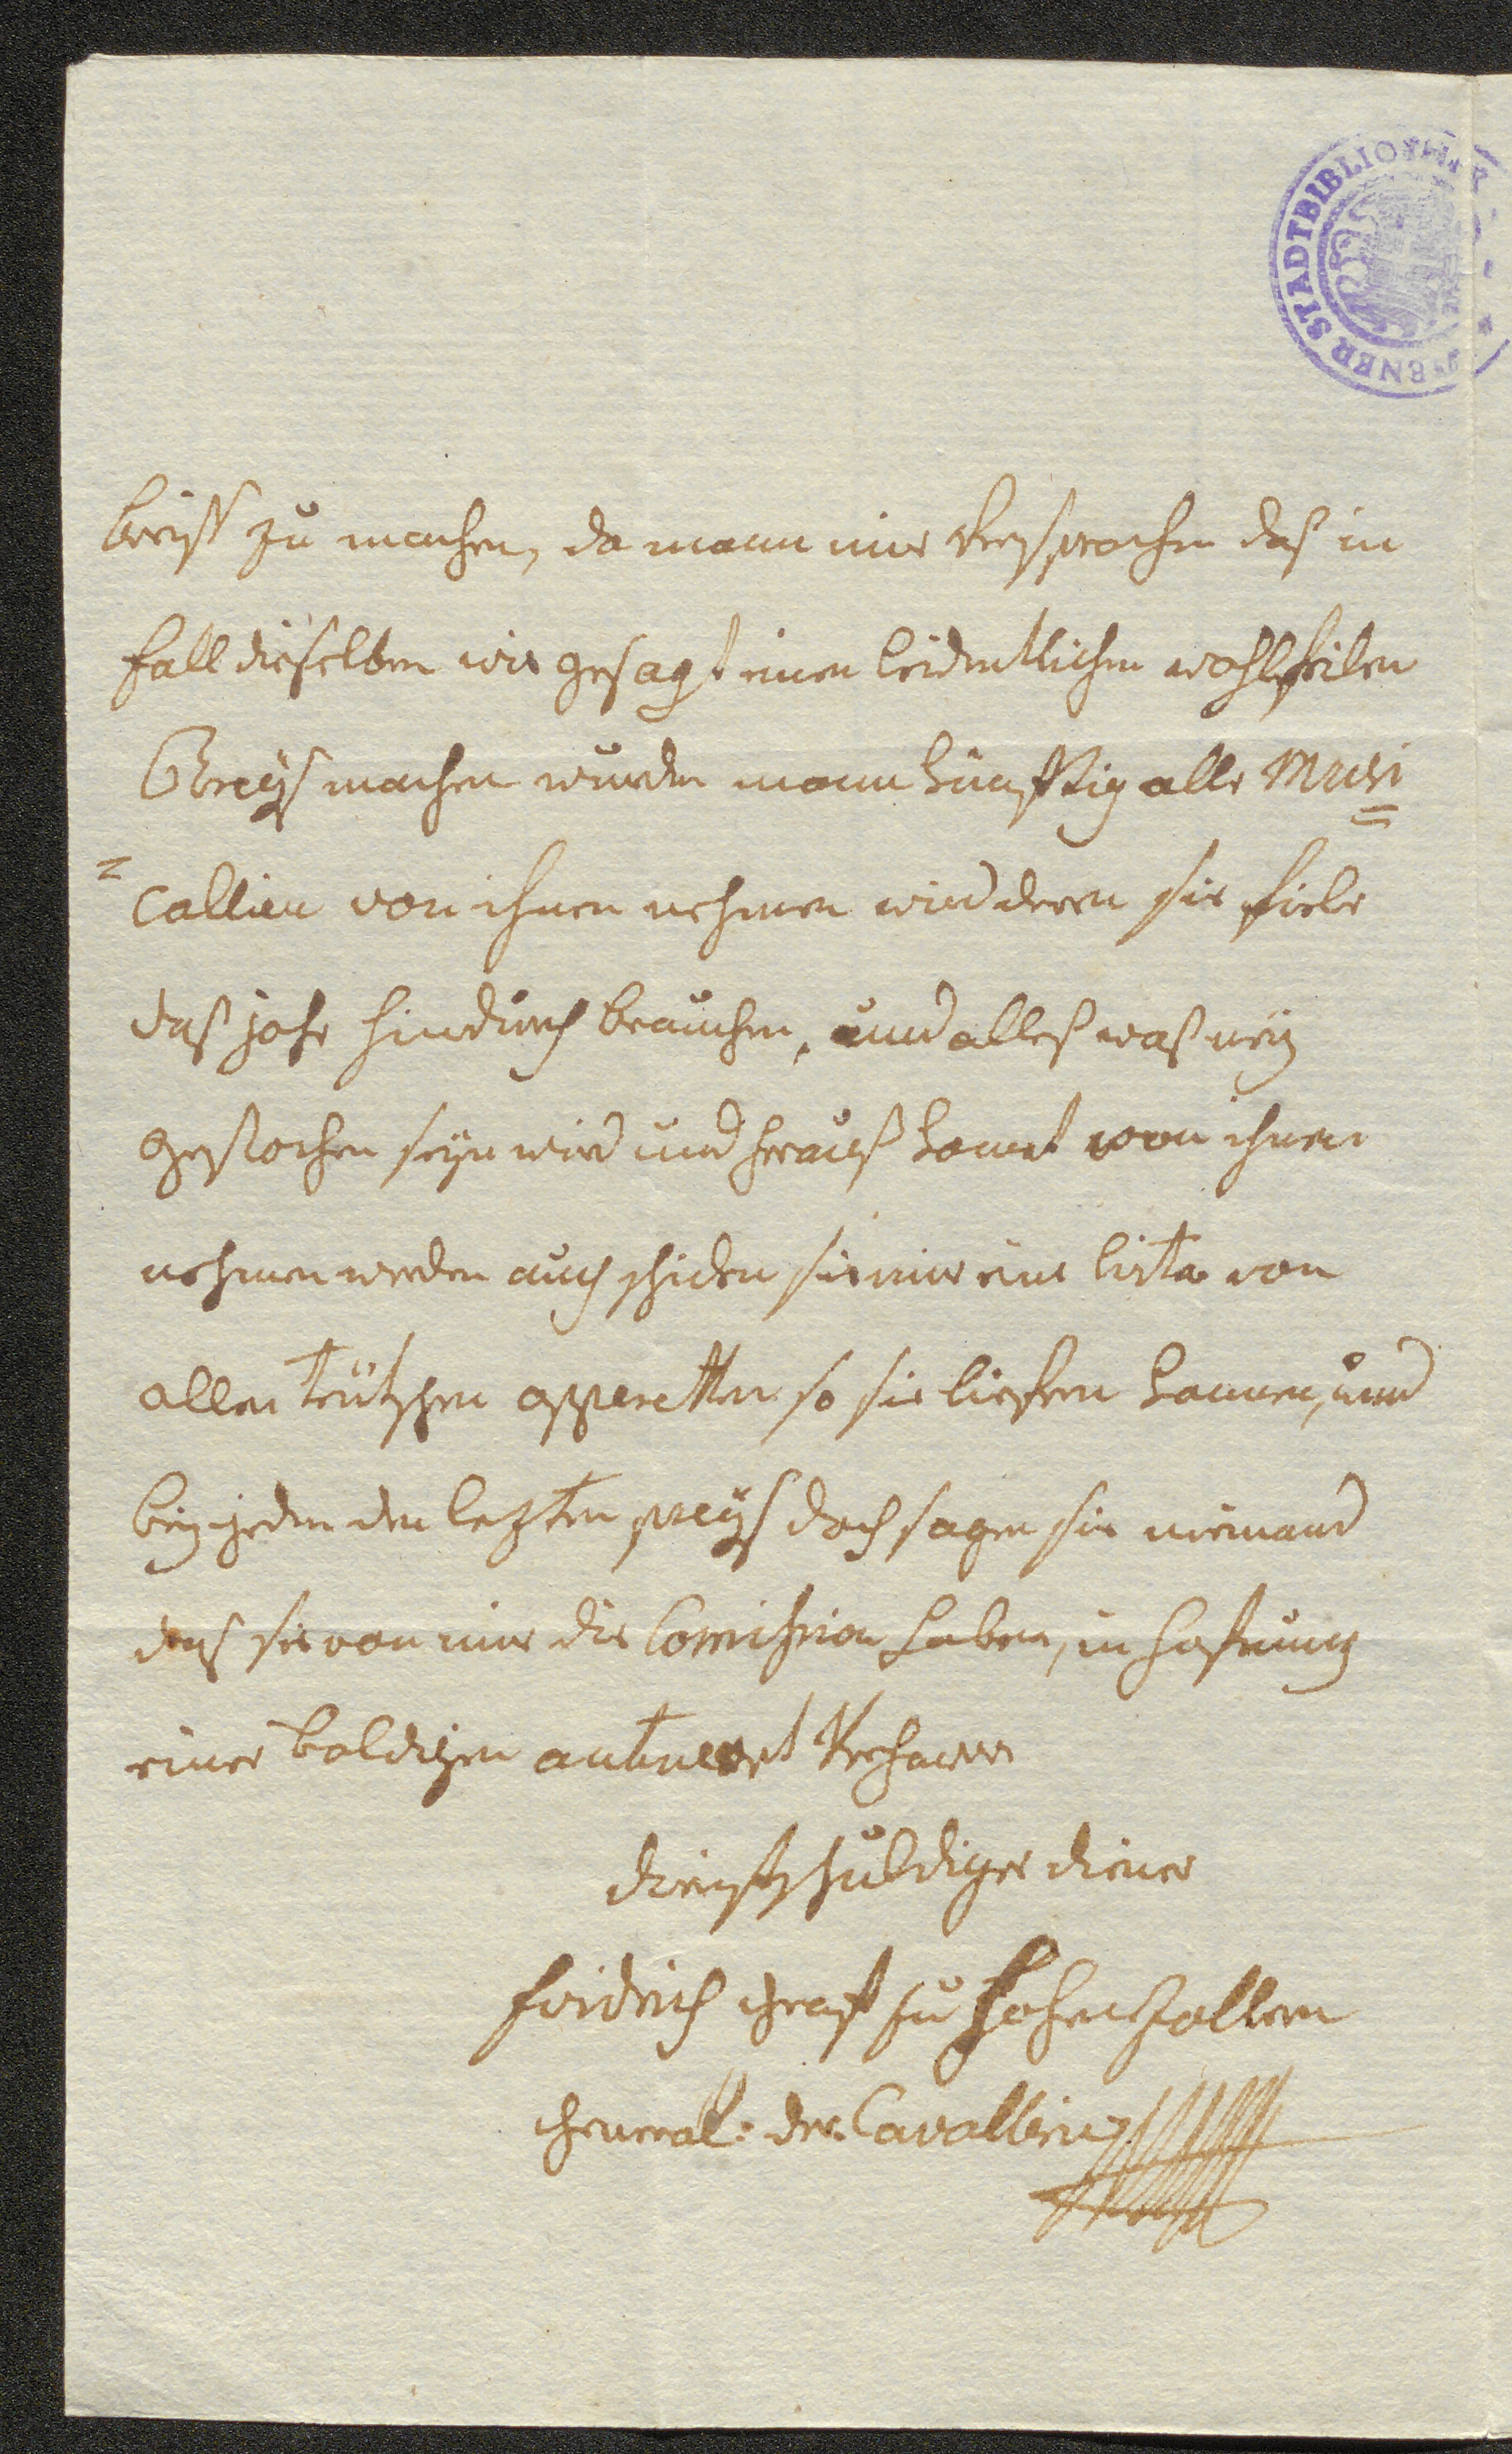 WIENER STADTBIBLIOTHEK
breiß zu machen, da mann mir versprochen daß in
fall dieselben wie gesagt einen leidentlichen wohlfeilen
Breyß machen wurden mann künfftig alle Musi
= callien von ihnen nehmen wird deren sie fiele
daß jahr hindurch brauchen, und alleß waß neü
gestochen seyn wird und herauß komt von ihnen
nehmen werden auch schiken sie mir eine lista von
allen teütschen opperetten so sie liefern konnen, und
beÿ jeden den lezten preyß doch sagen sie niemand
daß sie von mir die Comission haben, in hofnung
einer baldigen antwort verharre
dienstschuldiger diener
fridrich graf zu Hohenzollern
General: der Cavallerie